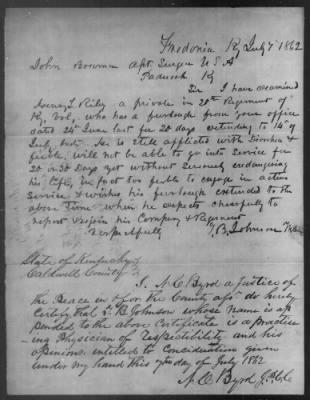 Fredonia Ky July 7 1862
John Bowman Apt. Surgn U S A
Paducah Ky
Sir I have examined
Henry L Riley a private in 20th Regiment of
Ky Vol, who has a furlough from your office
dated 24th June last for 20 days extending to 14th of
July Inst. He is still afflicted with Diarrhea &
feeble, will not be able to go into Service for
20 or 30 Days yet without Serious endangering
his life, in fact too feeble to engage in active
Service & wishes his furlough extended to the
above time when he expects cheerfully to
report & rejoin his Company & Regiment
Respectfully J. B. Johnson
State of Kentucky
Caldwell County
I, N. C. Byrd a Justice of
the Peace in & for the County afs. do hereby
Certify that J. B Johnson whose name is ap
pended to the above Certificate is a practic
ing Physician of respectibility and his
opinions intitled to Concideration given
under my hand this 7th day of July 1862
N. C. Byrd